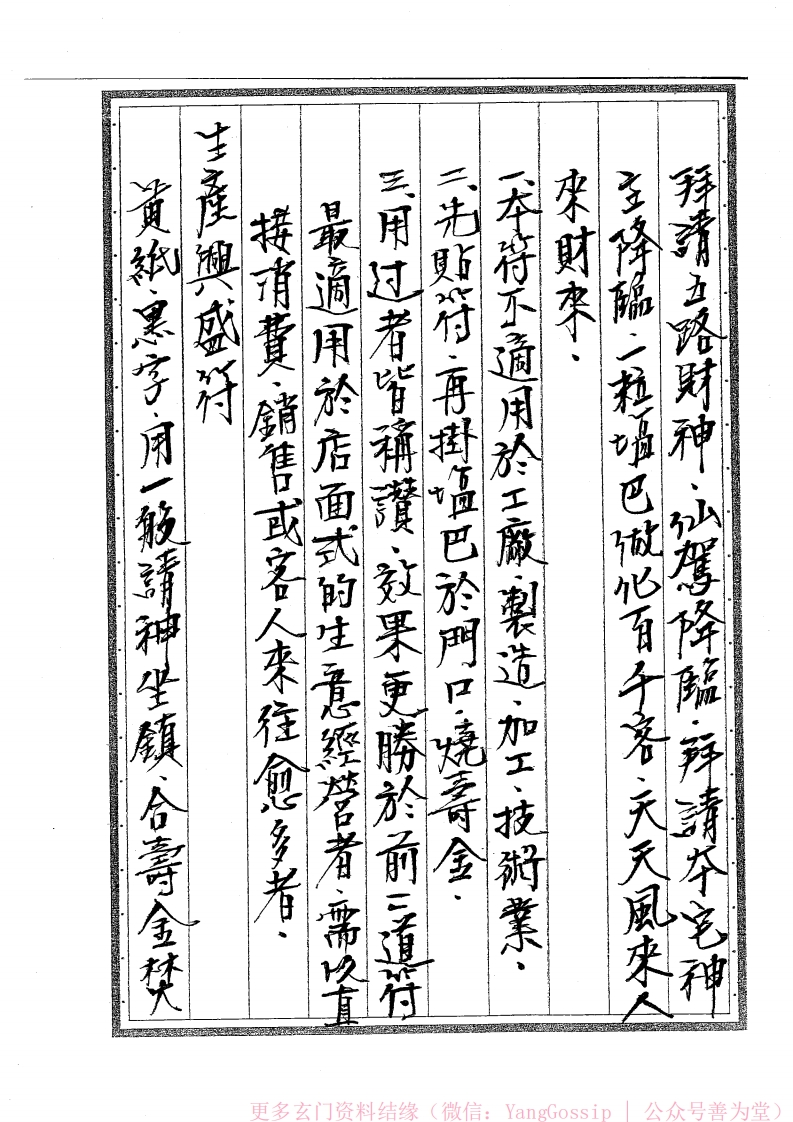 拜請五路財神、仙駕降臨、拜請本宅神
主降臨、一粒塭巴做化百千客、天天風來人
來財來、
一、本符不適用於工廠、製造、加工、技術業、
二、先貼符、再掛塭巴於門口、燒壽金、
三、用过者皆稱讚、效果更勝於前二道符
最適用於店面式的生意經營者、需以直
接消費、銷售或客人來往愈多者、
生產興盛符
黃紙、黑字、用一般請神坐鎮、合壽金焚
更多玄门资料结缘（微信：YangGossip | 公众号善为堂）